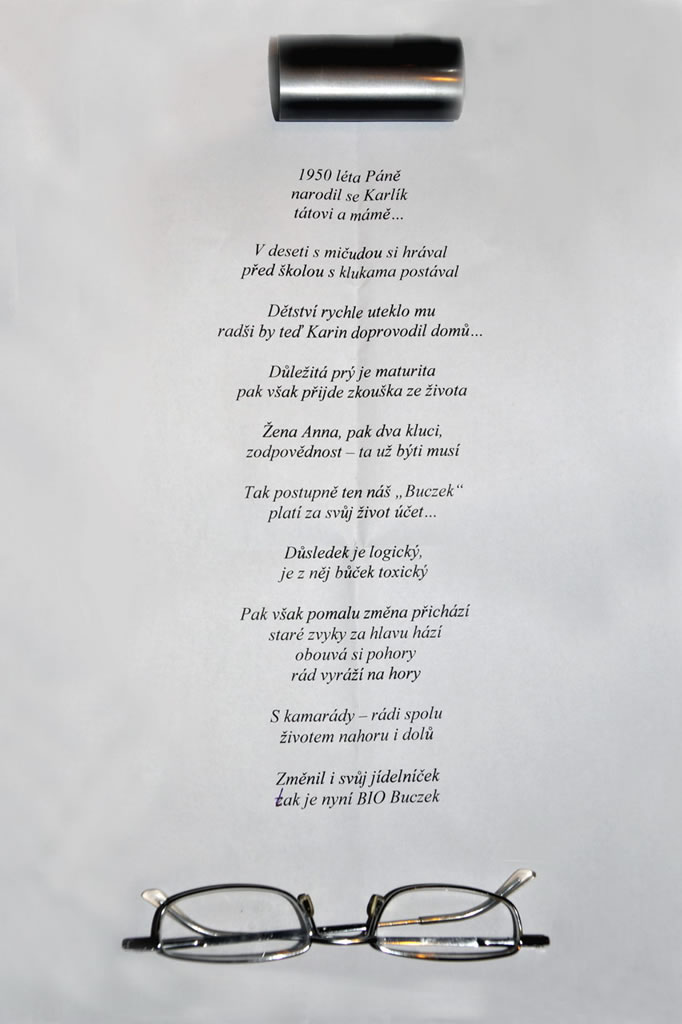 1950 léta Páně
narodil se Karlík
tátovi a mámě…
V deseti s mičudou si hrával
před školou s klukama postával
Dětství rychle uteklo mu
radši by teď Karin doprovodil domů…
Důležitá prý je maturita
pak však přijde zkouška ze života
Žena Anna, pak dva kluci,
zodpovědnost – ta už býti musí
Tak postupně ten náš „Buczek“
platí za svůj život účet…
Důsledek je logický,
je z něj bůček toxický
Pak však pomalu změna přichází
staré zvyky za hlavu hází
obouvá si pohory
rád vyráží na hory
S kamarády – rádi spolu
životem nahoru i dolů
Změnil i svůj jídelníček
tak je nyní BIO Buczek